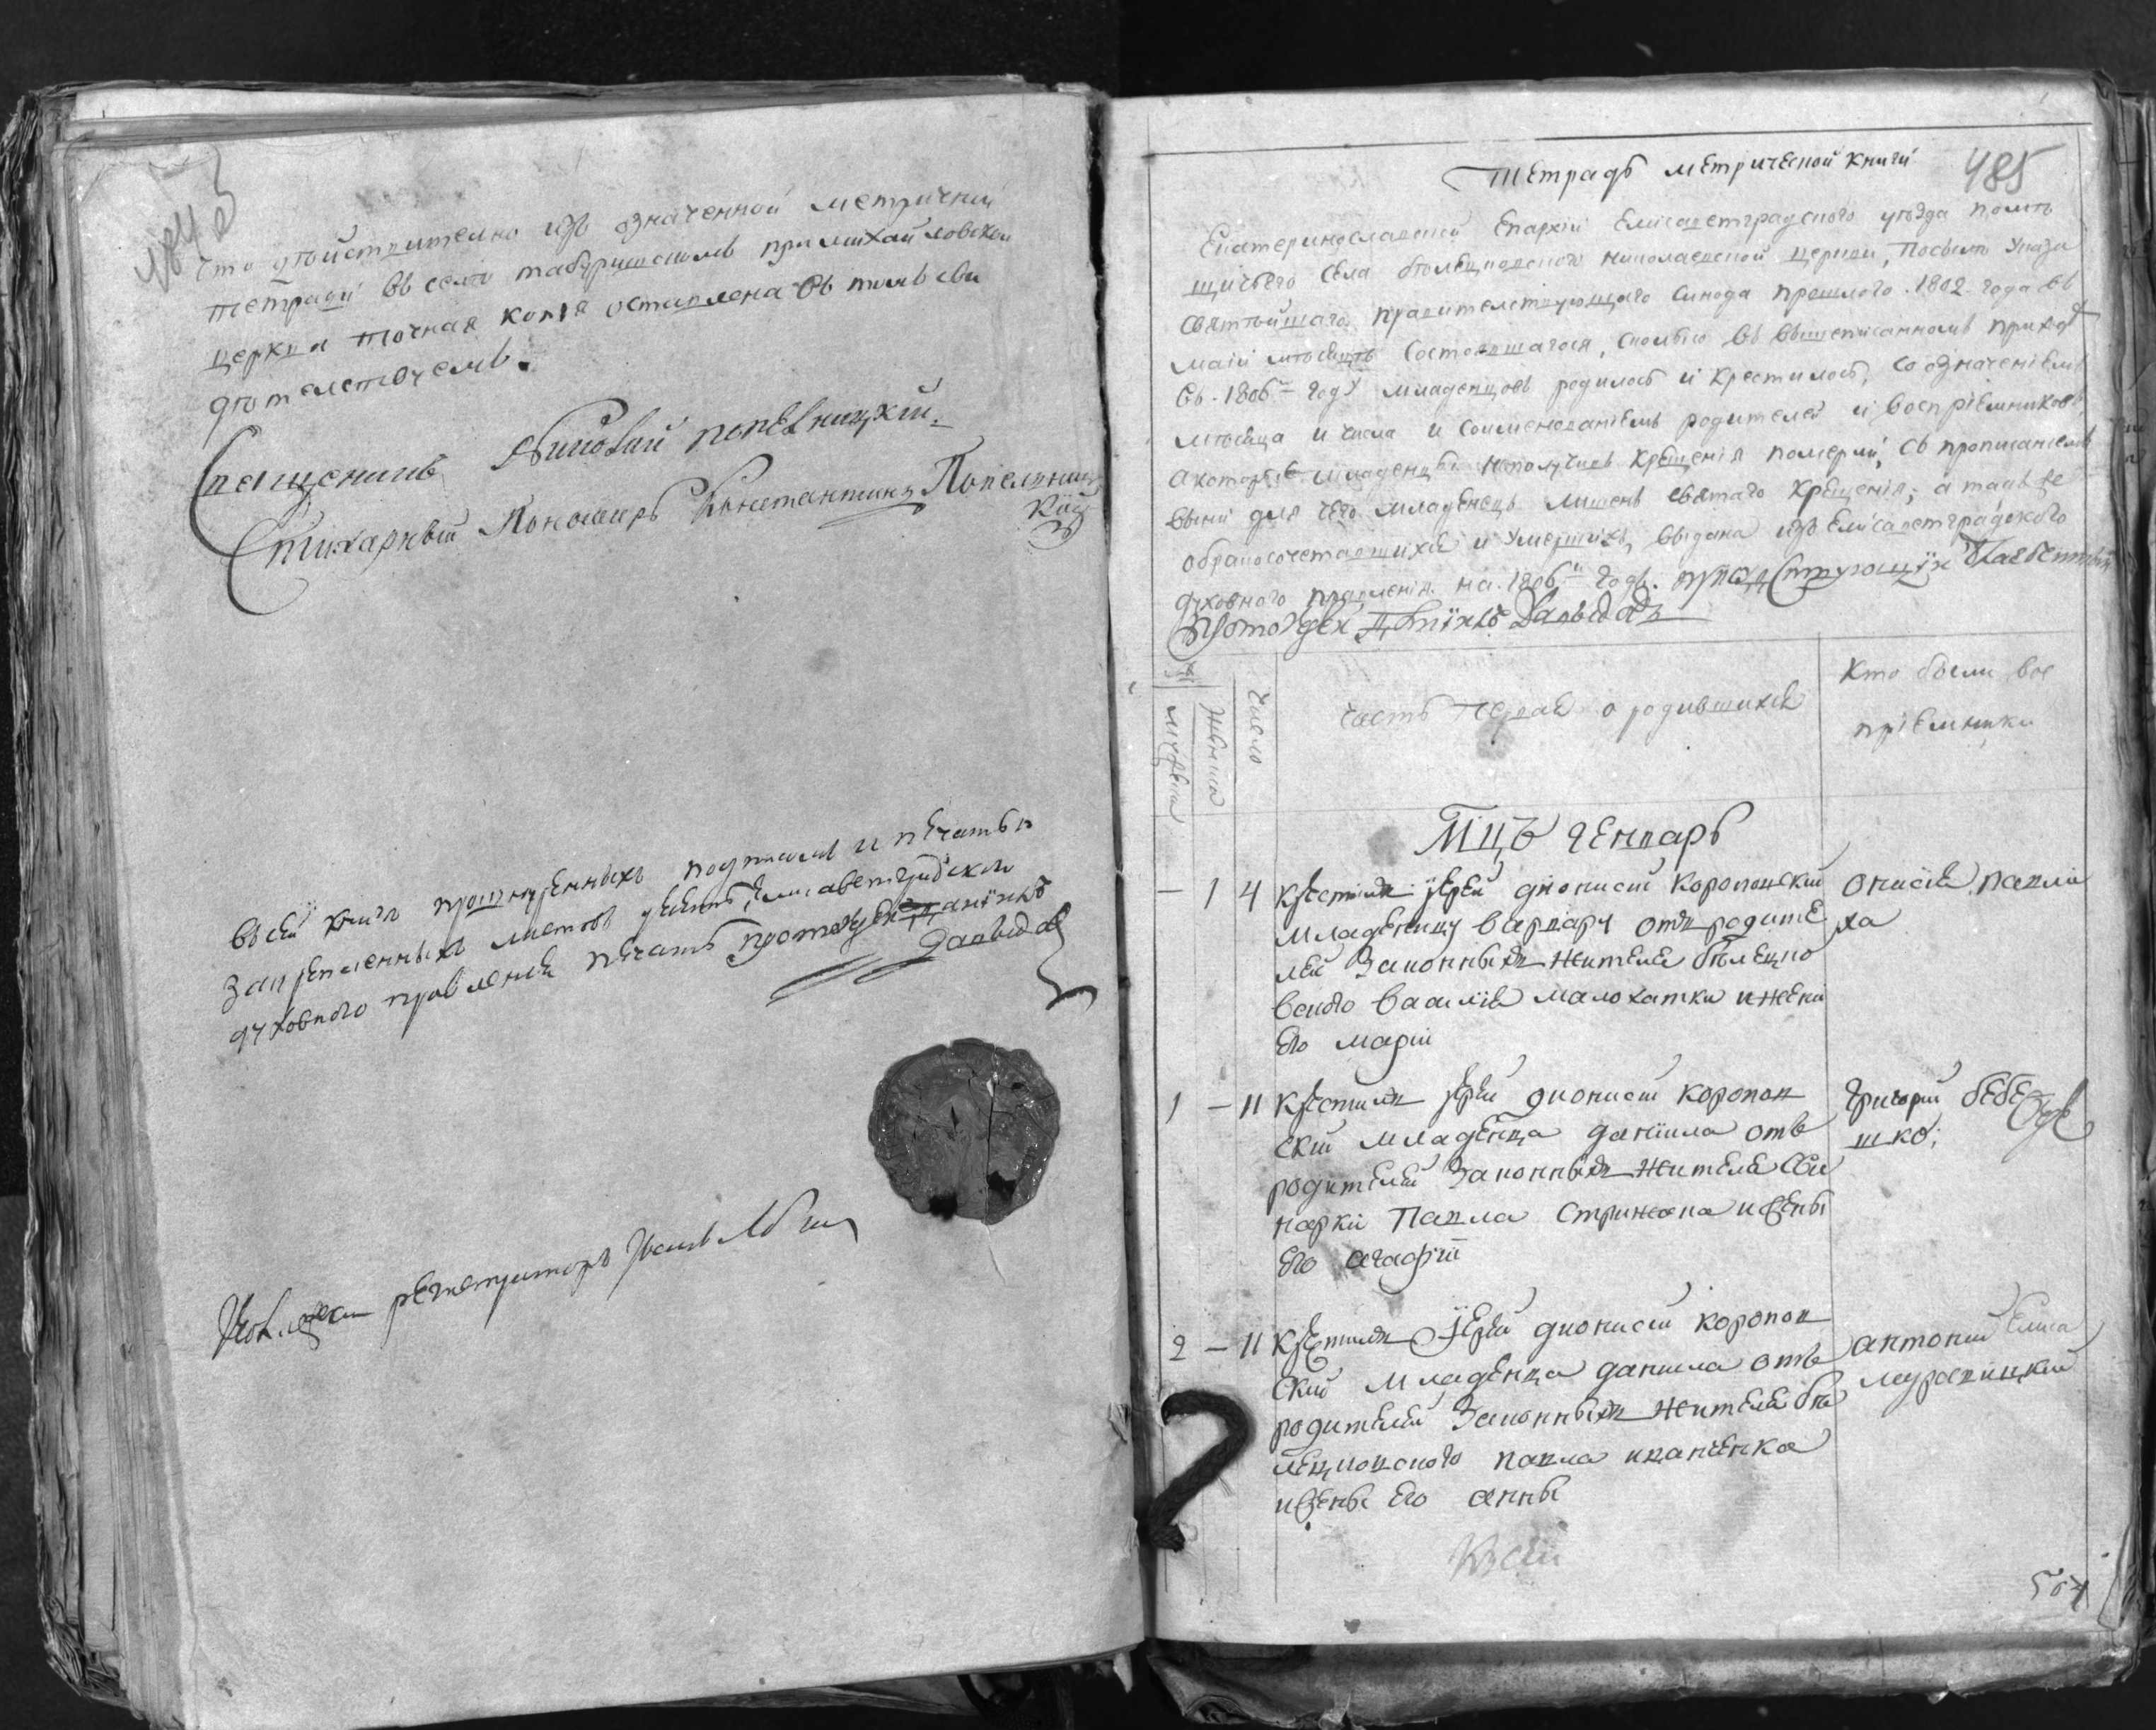 484
Что дѣйствително изъ означенной метричнїи
тетради въ селѣ табуришскомъ при михайловской
церкви точная копія оставлена въ томъ сви
дѣтелствуемъ.
Священникъ попельницкій.
Стихарный Пономарь Константинъ Попельниц
кій
Въ сей книгѣ прошнуренныхъ подписью и печатью
закрепленныхъ листовъ Елисаветградскаго
духовного правленія печать протоіерей
Давыдов
регистраторъ Иванъ
Тетрадь метрической книги
485
Екатеринославской Епархїи Елисаветградского уѣзда помѣ
щичьего села николаевской церкви, Посылѣ Указа
святѣйшаго правителствующаго синода прошлого 1802 года въ
маїи мѣсяцѣ Состоявшагося, сколько въ вышеписанномъ приход
въ 1806м году младенцовъ родилось и крестилось, со означенїемъ
мѣсяца и числа и соименованїемъ родителей и воспрїемниковъ
а которые младенцы неполучивъ крещенія померли, съ прописанїемъ
вины для чего младенецъ лишенъ святаго крещенія; а такъ же
обракосочетавшихся и умершихъ, выдана изъ Елисаветградского
духовного правленія на 1806й годъ. присудствующїй
Протоіерей Давыдовъ
число
женска
мужеска
Часть первая о родившихся
Кто были вос
прїемники
Мцъ генварь
– 1 4 крестилъ їерей дионисїй короповский
младеницу варвару отъ родите
лей законныхъ жителя болецко
вского василїя малохатки и жени
его марїи
онисїя павли
ха
1 – 11 крестилъ їерей дионисїй коропов
скїй младенца данїила отъ
родителей законныхъ жителя
Павла Стрижака и жены
его агафїи
григорїй бебе
шко;
2 – 11 крестилъ їерей дионисїй коропов
скїй младенца данїила отъ
родителей законныхъ жителя бо
лецковского павла иванченка
и жены его анны
антонїй
муравицкїй